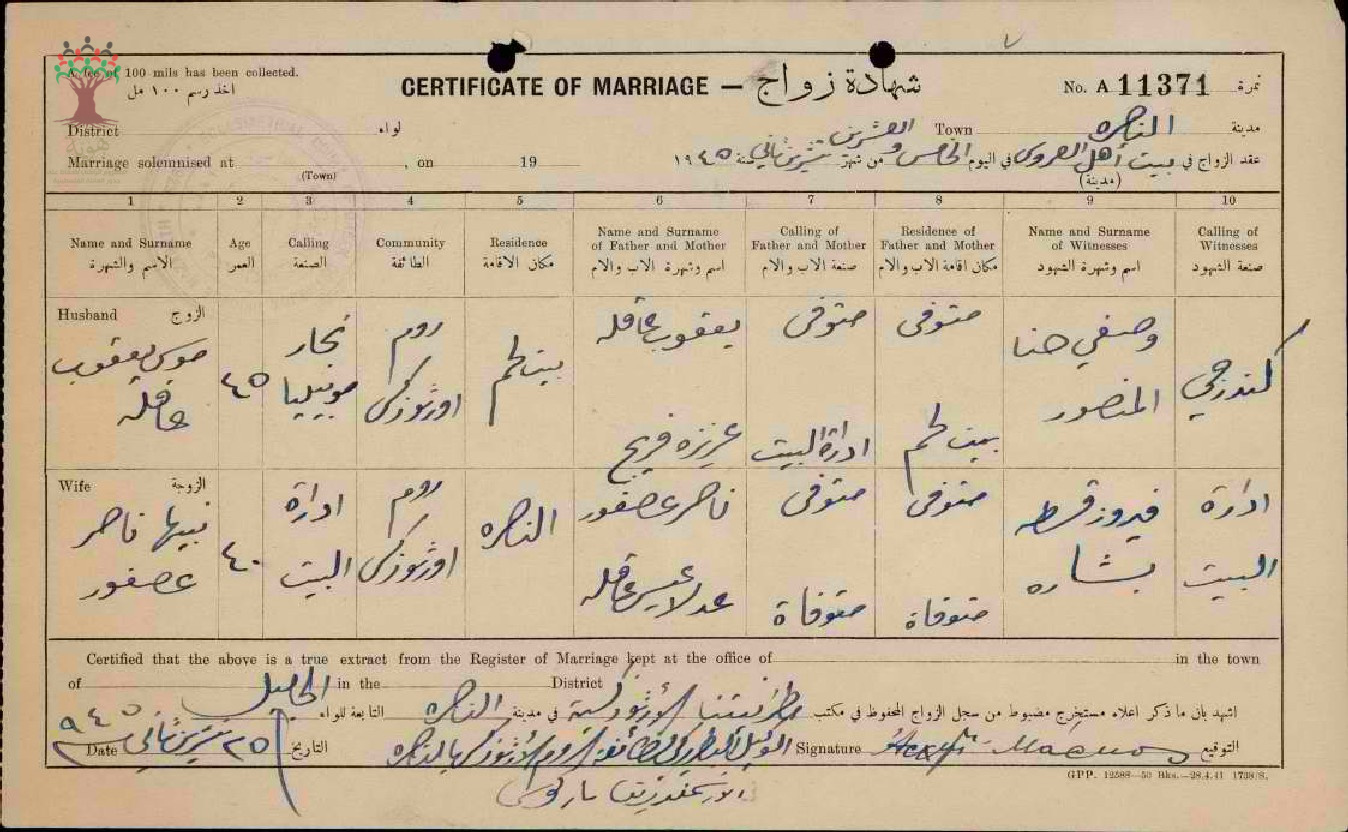 A fee of 100 mils has been collected.
اخذ رسم ١٠٠ مل
CERTIFICATE OF MARRIAGE — شهادة زواج
No. A 11371 نمرة
District لواء Town الناصره مدينة
Marriage solemnised at , on 19
(Town)
عقد الزواج في بيت أهل العروس في اليوم الخامس والعشرين من شهر تشرين ثاني سنة ١٩٤٥
(مدينة)
1 2 3 4 5 6 7 8 9 10
Name and Surname Age Calling Community Residence Name and Surname of Father and Mother Calling of Father and Mother Residence of Father and Mother Name and Surname of Witnesses Calling of Witnesses
الاسم والشهرة العمر الصنعة الطائفة مكان الاقامة اسم وشهرة الاب والام صنعة الاب والام مكان اقامة الاب والام اسم وشهرة الشهود صنعة الشهود
Husband الزوج
موسى يعقوب عاقله
٤٥
نجار موبيليا
روم اورثوذكس
بيت لحم
يعقوب عاقله
عزيزه فريج
متوفى
ادارة البيت
متوفى
بيت لحم
وصفي حنا المنصور
كندرجي
Wife الزوجة
نبيها ناصر عصفور
٤٠
ادارة البيت
روم اورثوذكس
الناصره
ناصر عصفور
عيسى عاقله
متوفى
متوفاة
متوفى
متوفاة
فيروز قسطه بشاره
ادارة البيت
Certified that the above is a true extract from the Register of Marriage kept at the office of in the town
of in the District
اشهد بان ما ذكر اعلاه مستخرج مضبوط من سجل الزواج المحفوظ في مكتب طائفتنا الارثوذكسية في مدينة الناصره التابعة للواء الجليل
Date ٢٥ تشرين ثاني ٩٤٥ التاريخ
الوكيل البطريركي لطائفة الروم الارثوذكس بالناصره
Signature التوقيع
GPP. 12588—50 Bks.—28.4.41 1738/S.